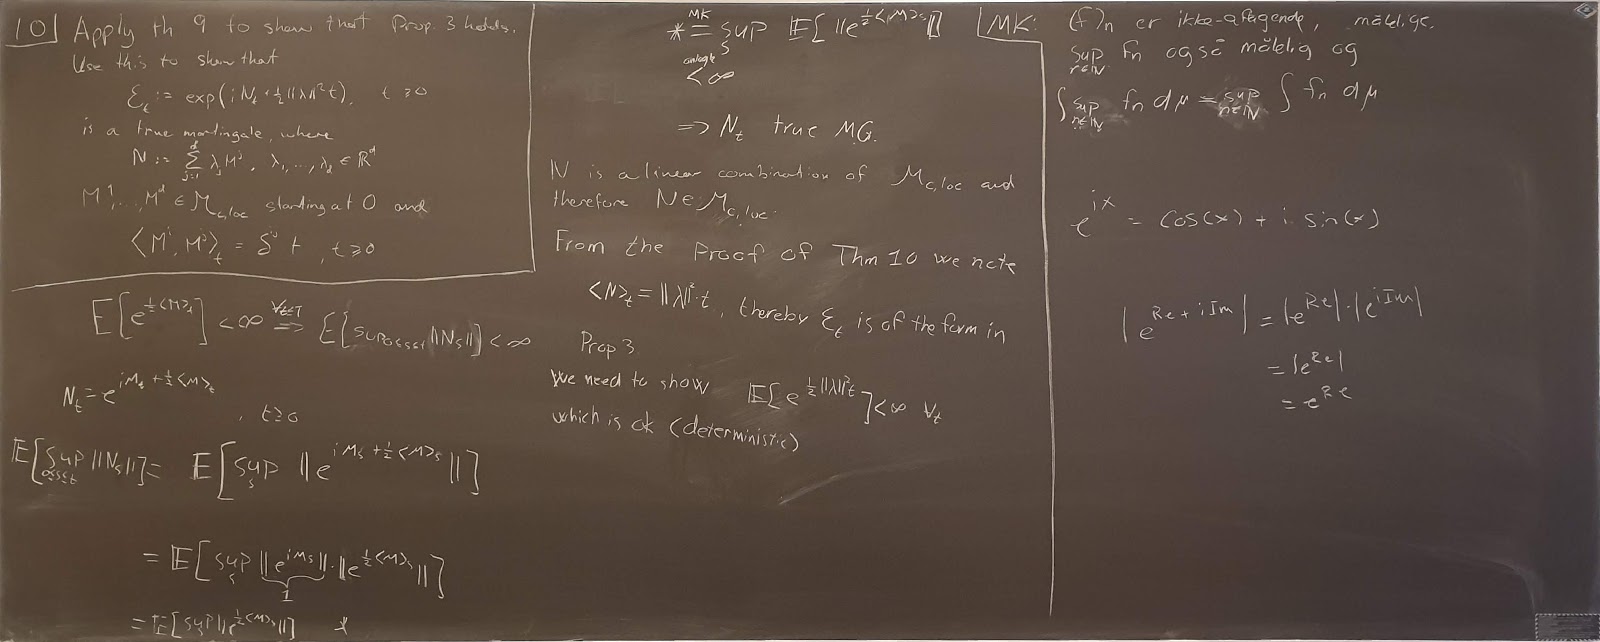 10) Apply th 9 to show that Prop. 3 holds.
Use this to show that
ℰ_t := exp(i N_t + ½‖λ‖² t), t ≥ 0
is a true martingale, where
N := Σ_{j=1}^d λ_j M^j, λ_1, ..., λ_d ∈ ℝ^d
M^1, ..., M^d ∈ M_{c,loc} starting at 0 and
⟨M^i, M^j⟩_t = δ^{ij} t, t ≥ 0
E[e^{½⟨M⟩_t}] < ∞ ⟹ E[sup_{0≤s≤t} ‖N_s‖] < ∞
N_t = e^{iM_t + ½⟨M⟩_t}, t ≥ 0
E[sup_{0≤s≤t} ‖N_s‖] = E[sup_s ‖e^{iM_s + ½⟨M⟩_s}‖]
= E[sup_s ‖e^{iM_s}‖ · ‖e^{½⟨M⟩_s}‖]
1
= E[sup_s ‖e^{½⟨M⟩_s}‖] *
MK
* = sup_s E[‖e^{½⟨M⟩_s}‖]
< ∞
⟹ N_t true MG.
N is a linear combination of M_{c,loc} and
therefore N ∈ M_{c,loc}.
From the proof of Thm 10 we note
⟨N⟩_t = ‖λ‖² · t, thereby ℰ_t is of the form in
Prop 3
We need to show E[e^{½‖λ‖² t}] < ∞ ∀t
which is ok (deterministic)
MK: (f)_n er ikke-aftagende, målelige.
sup_{n∈ℕ} f_n også målelig og
∫ sup_{n∈ℕ} f_n dμ = sup_{n∈ℕ} ∫ f_n dμ
e^{ix} = cos(x) + i sin(x)
|e^{Re + iIm}| = |e^{Re}| · |e^{iIm}|
= |e^{Re}|
= e^{Re}